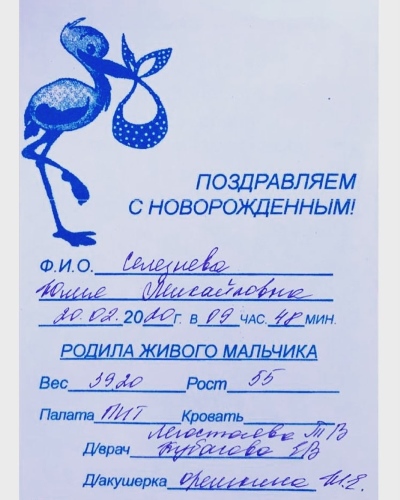 ПОЗДРАВЛЯЕМ
С НОВОРОЖДЕННЫМ!
Ф.И.О. Селезнева
Юлия Михайловна
20.02.2020 г. в 09 ЧАС. 48 МИН.
РОДИЛА ЖИВОГО МАЛЬЧИКА
Вес 3920 Рост 55
Палата ПИТ Кровать
ТВ
Д/врач ЕВ
Д/акушерка Орешкина